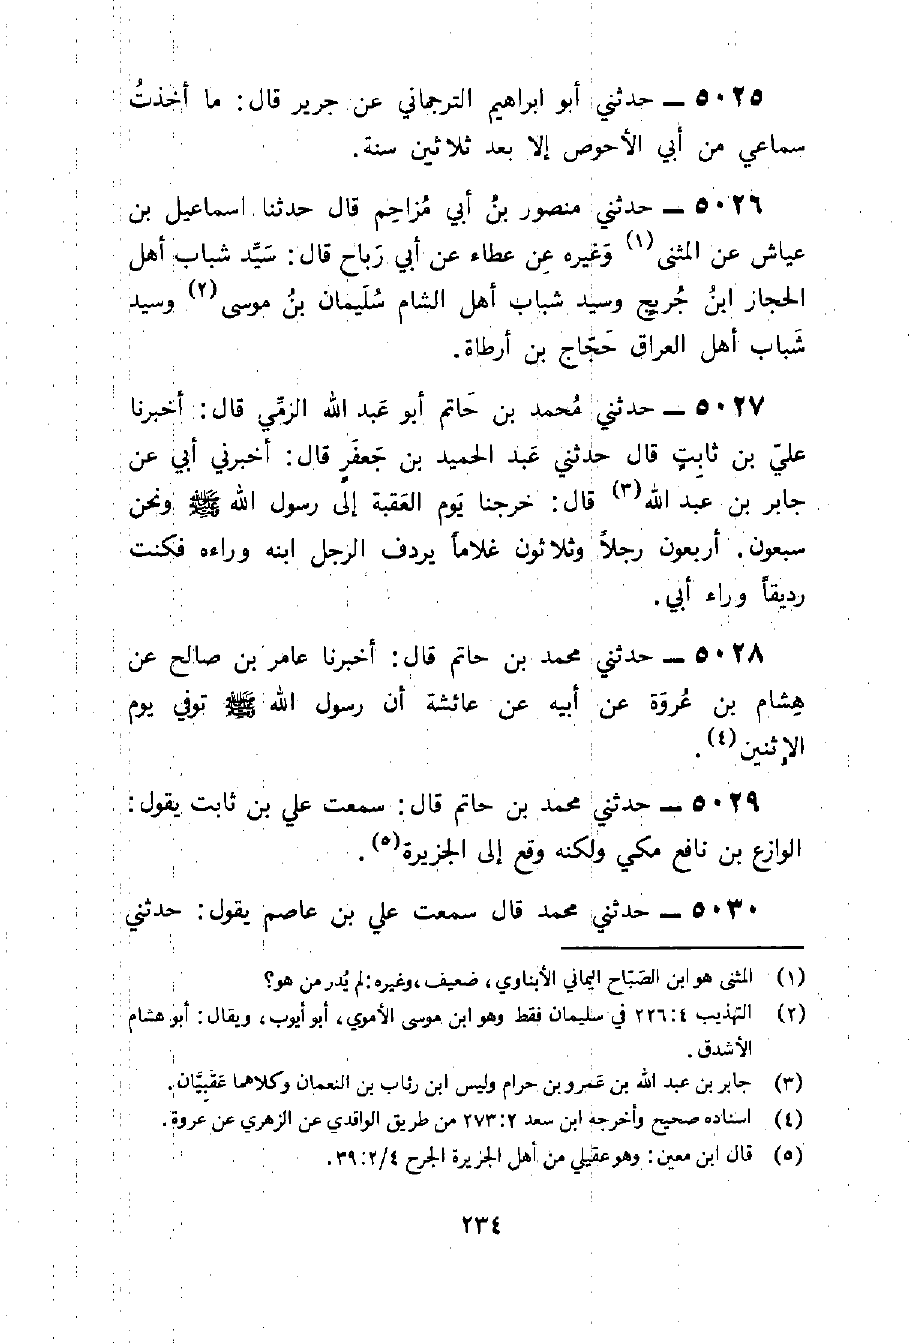 ٥٠٢٥ ــ حدثني أبو ابراهيم الترجماني عن جرير قال: ما أخذتُ
سماعي من أبي الأحوص إلا بعد ثلاثين سنة.
٥٠٢٦ ــ حدثني منصور بنُ أبي مُزاحِم قال حدثنا اسماعيل بن
عياش عن المثنى(١) وَغيره عن عطاء عن أبي رَباح قال: سَيَّد شباب أهل
الحجاز ابنُ جُريج وسيد شباب أهل الشام سُلَيمان بنُ موسى(٢) وسيد
شَباب أهل العراق حَجّاج بن أرطاة.
٥٠٢٧ ــ حدثني مُحمد بن حَاتم أبو عَبد الله الزمِّي قال: أخبرنا
عليّ بن ثابِتٍ قال حدثني عَبد الحميد بن جَعفَرٍ قال: أخبرني أبي عن
جابر بن عبد الله(٣) قال: خرجنا يَوم العَقبة إلى رسول الله ﷺ ونحن
سبعون. أربعون رجلاً وثلاثون غلاماً يردف الرجل ابنه وراءه فكنت
رديقاً وراء أبي.
٥٠٢٨ ــ حدثني محمد بن حاتم قال: أخبرنا عامر بن صالح عن
هِشام بن عُروَة عن أبيه عن عائشة أن رسول الله ﷺ توفي يوم
الإثنين(٤).
٥٠٢٩ ــ حدثني محمد بن حاتم قال: سمعت علي بن ثابت يقول:
الوازع بن نافع مكي ولكنه وقع إلى الجزيرة(٥).
٥٠٣٠ ــ حدثني محمد قال سمعت علي بن عاصم يقول: حدثني
(١) المثنى هو ابن الصَبّاح اليماني الأبناوي، ضعيف، وغيره: لم يُدر من هو؟
(٢) التهذيب ٤:٢٢٦ في سليمان فقط وهو ابن موسى الأموي، أبو أيوب، ويقال: أبو هشام
الأشدق.
(٣) جابر بن عبد الله بن عَمرو بن حرام وليس ابن رئاب بن النعمان وكلاهما عَقَبِيَّان.
(٤) اسناده صحيح وأخرجه ابن سعد ٢:٢٧٣ من طريق الواقدي عن الزهري عن عروة.
(٥) قال ابن معين: وهو عقيلي من أهل الجزيرة الجرح ٤/٢:٣٩.
٢٣٤